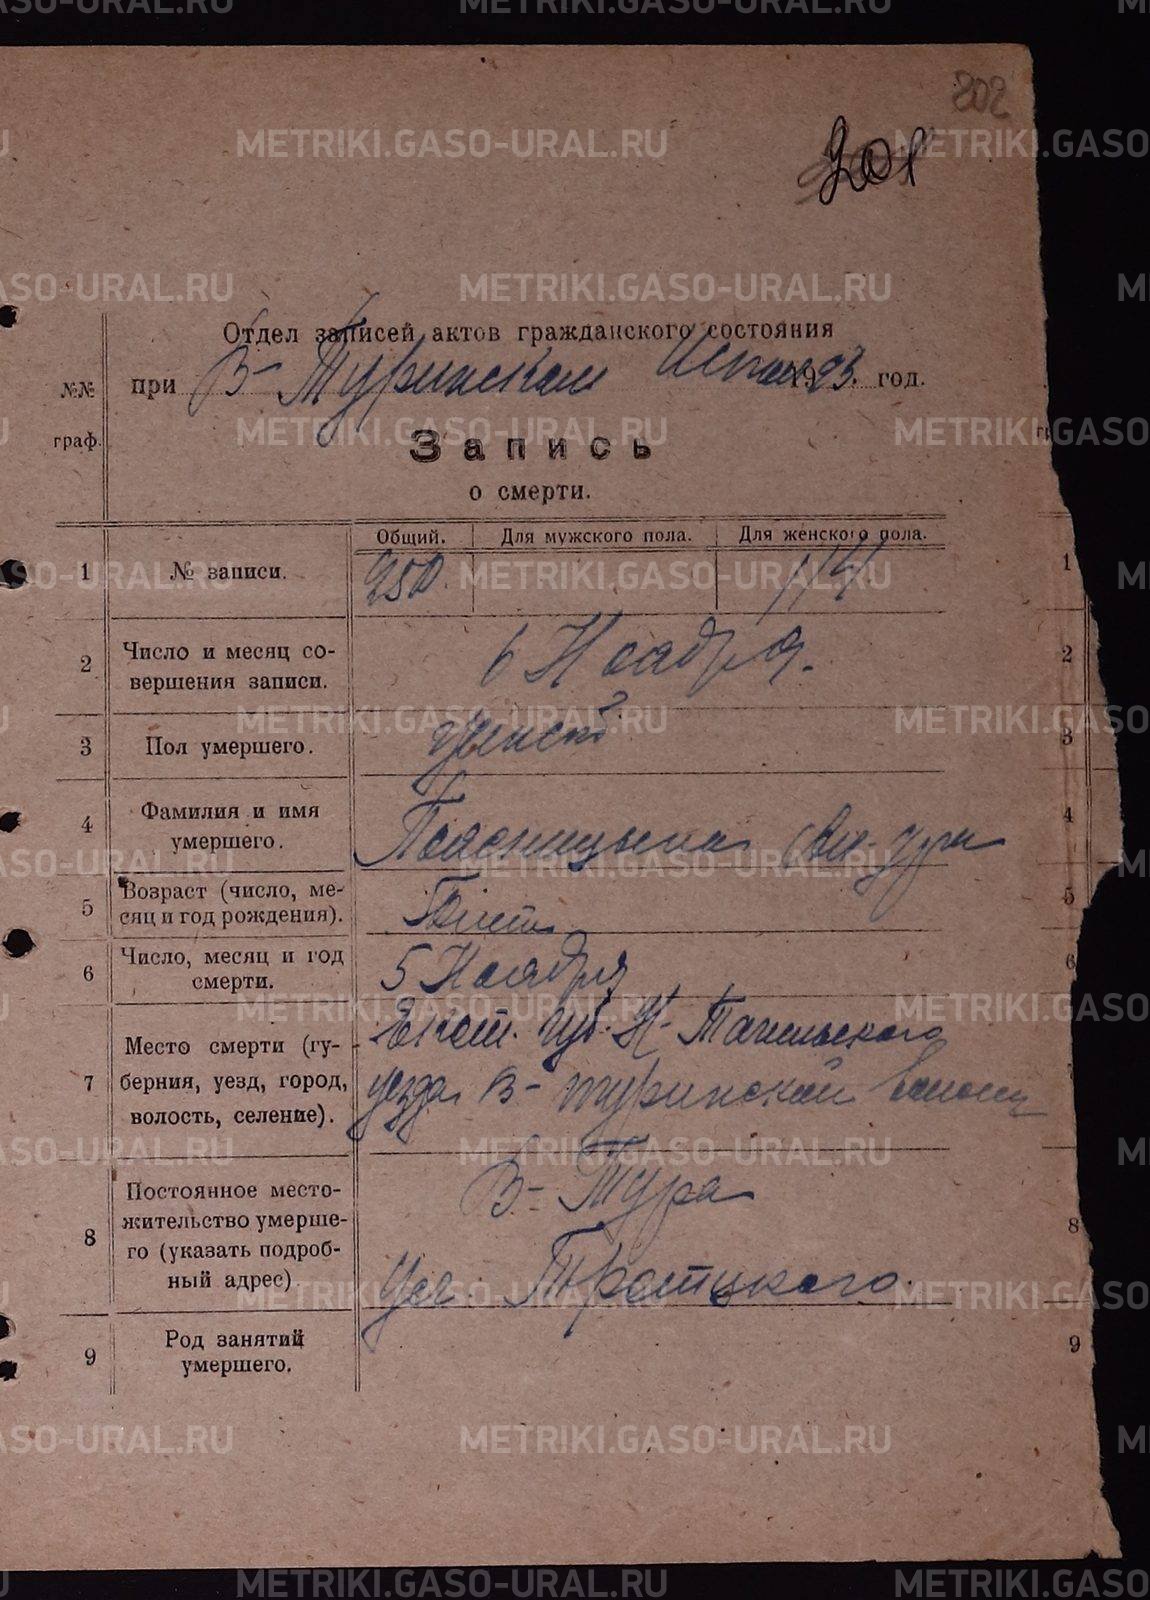 202
201
Отдел записей актов гражданского состояния
№№ граф.
при В-Туринском 1923 год.
Запись
о смерти.
Общий. Для мужского пола. Для женского пола.
1 № записи. 250. 114 1
2 Число и месяц со-
вершения записи. 6 Ноября. 2
3 Пол умершего. женск 3
4 Фамилия и имя
умершего. 4
5 Возраст (число, ме-
сяц и год рождения). 5
6 Число, месяц и год
смерти. 5 Ноября 6
7 Место смерти (гу-
берния, уезд, город,
волость, селение). Екат. губ. Н-Тагильского
уезда В-туринской волости
8 Постоянное место-
жительство умерше-
го (указать подроб-
ный адрес) В-Тура
Ул. Троцкого. 8
9 Род занятий
умершего. 9
METRIKI.GASO-URAL.RU